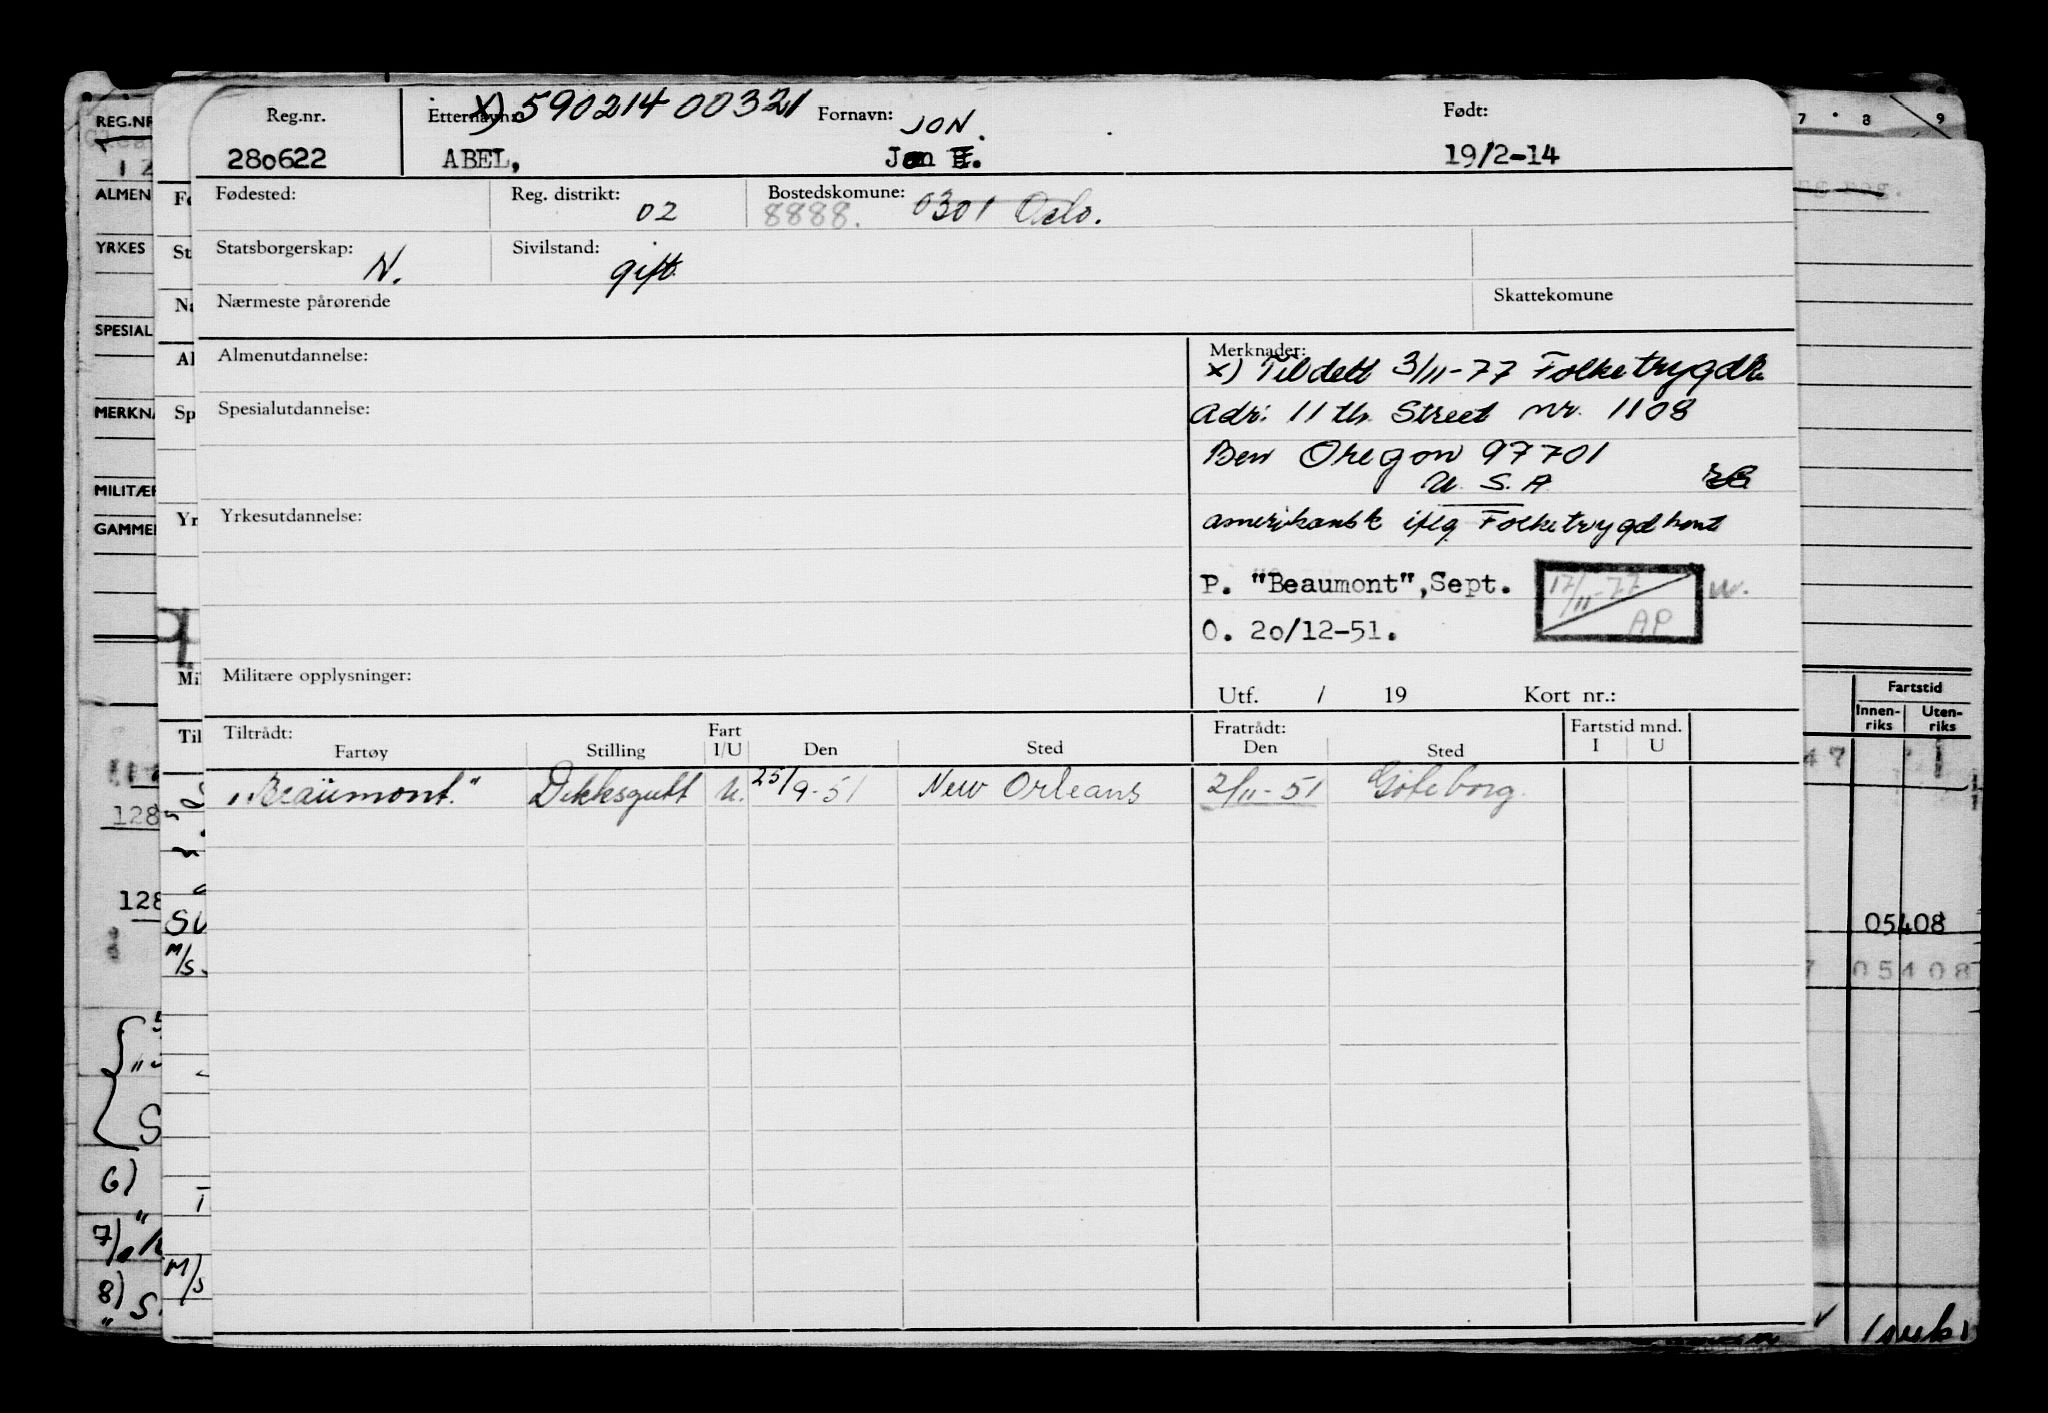 Reg.nr. Etternavn: x) 590214 00321 Fornavn: JON. Født:
280622 ABEL, 19/2-14
Fødested: Reg. distrikt: 02 Bostedskomune: 8888. 0301 Oslo.
Statsborgerskap: N. Sivilstand: gift
Nærmeste pårørende Skattekomune
Almenutdannelse: Merknader:
x) Tildelt 3/11-77 Folketrygdk
Spesialutdannelse: Adr: 11 th. Street nr. 1108
Ben Oregon 97701
U. S. A
Yrkesutdannelse: amerikansk iflg Folketrygdkont
P. "Beaumont",Sept. 17/11-77
O. 20/12-51. AP
Militære opplysninger:
Utf. / 19 Kort nr.:
Tiltrådt: Fart Fratrådt: Fartstid mnd.
Fartøy Stilling I/U Den Sted Den Sted I U
"Beaumont." Dekksgutt U. 25/9-51 New Orleans 2/11-51 Göteborg.
REG.NR
12
ALMEN
YRKES
SPESIAL
MERKNA
MILITÆR
GAMMEL
128
128
6)
7)
8) S.
Fø
St
Na
Al
Sp
Yr
Mi
Til
SU
M/S.
M/S
7 8 9
Fartstid
Innen-riks Uten-riks
47 1
05408
05408